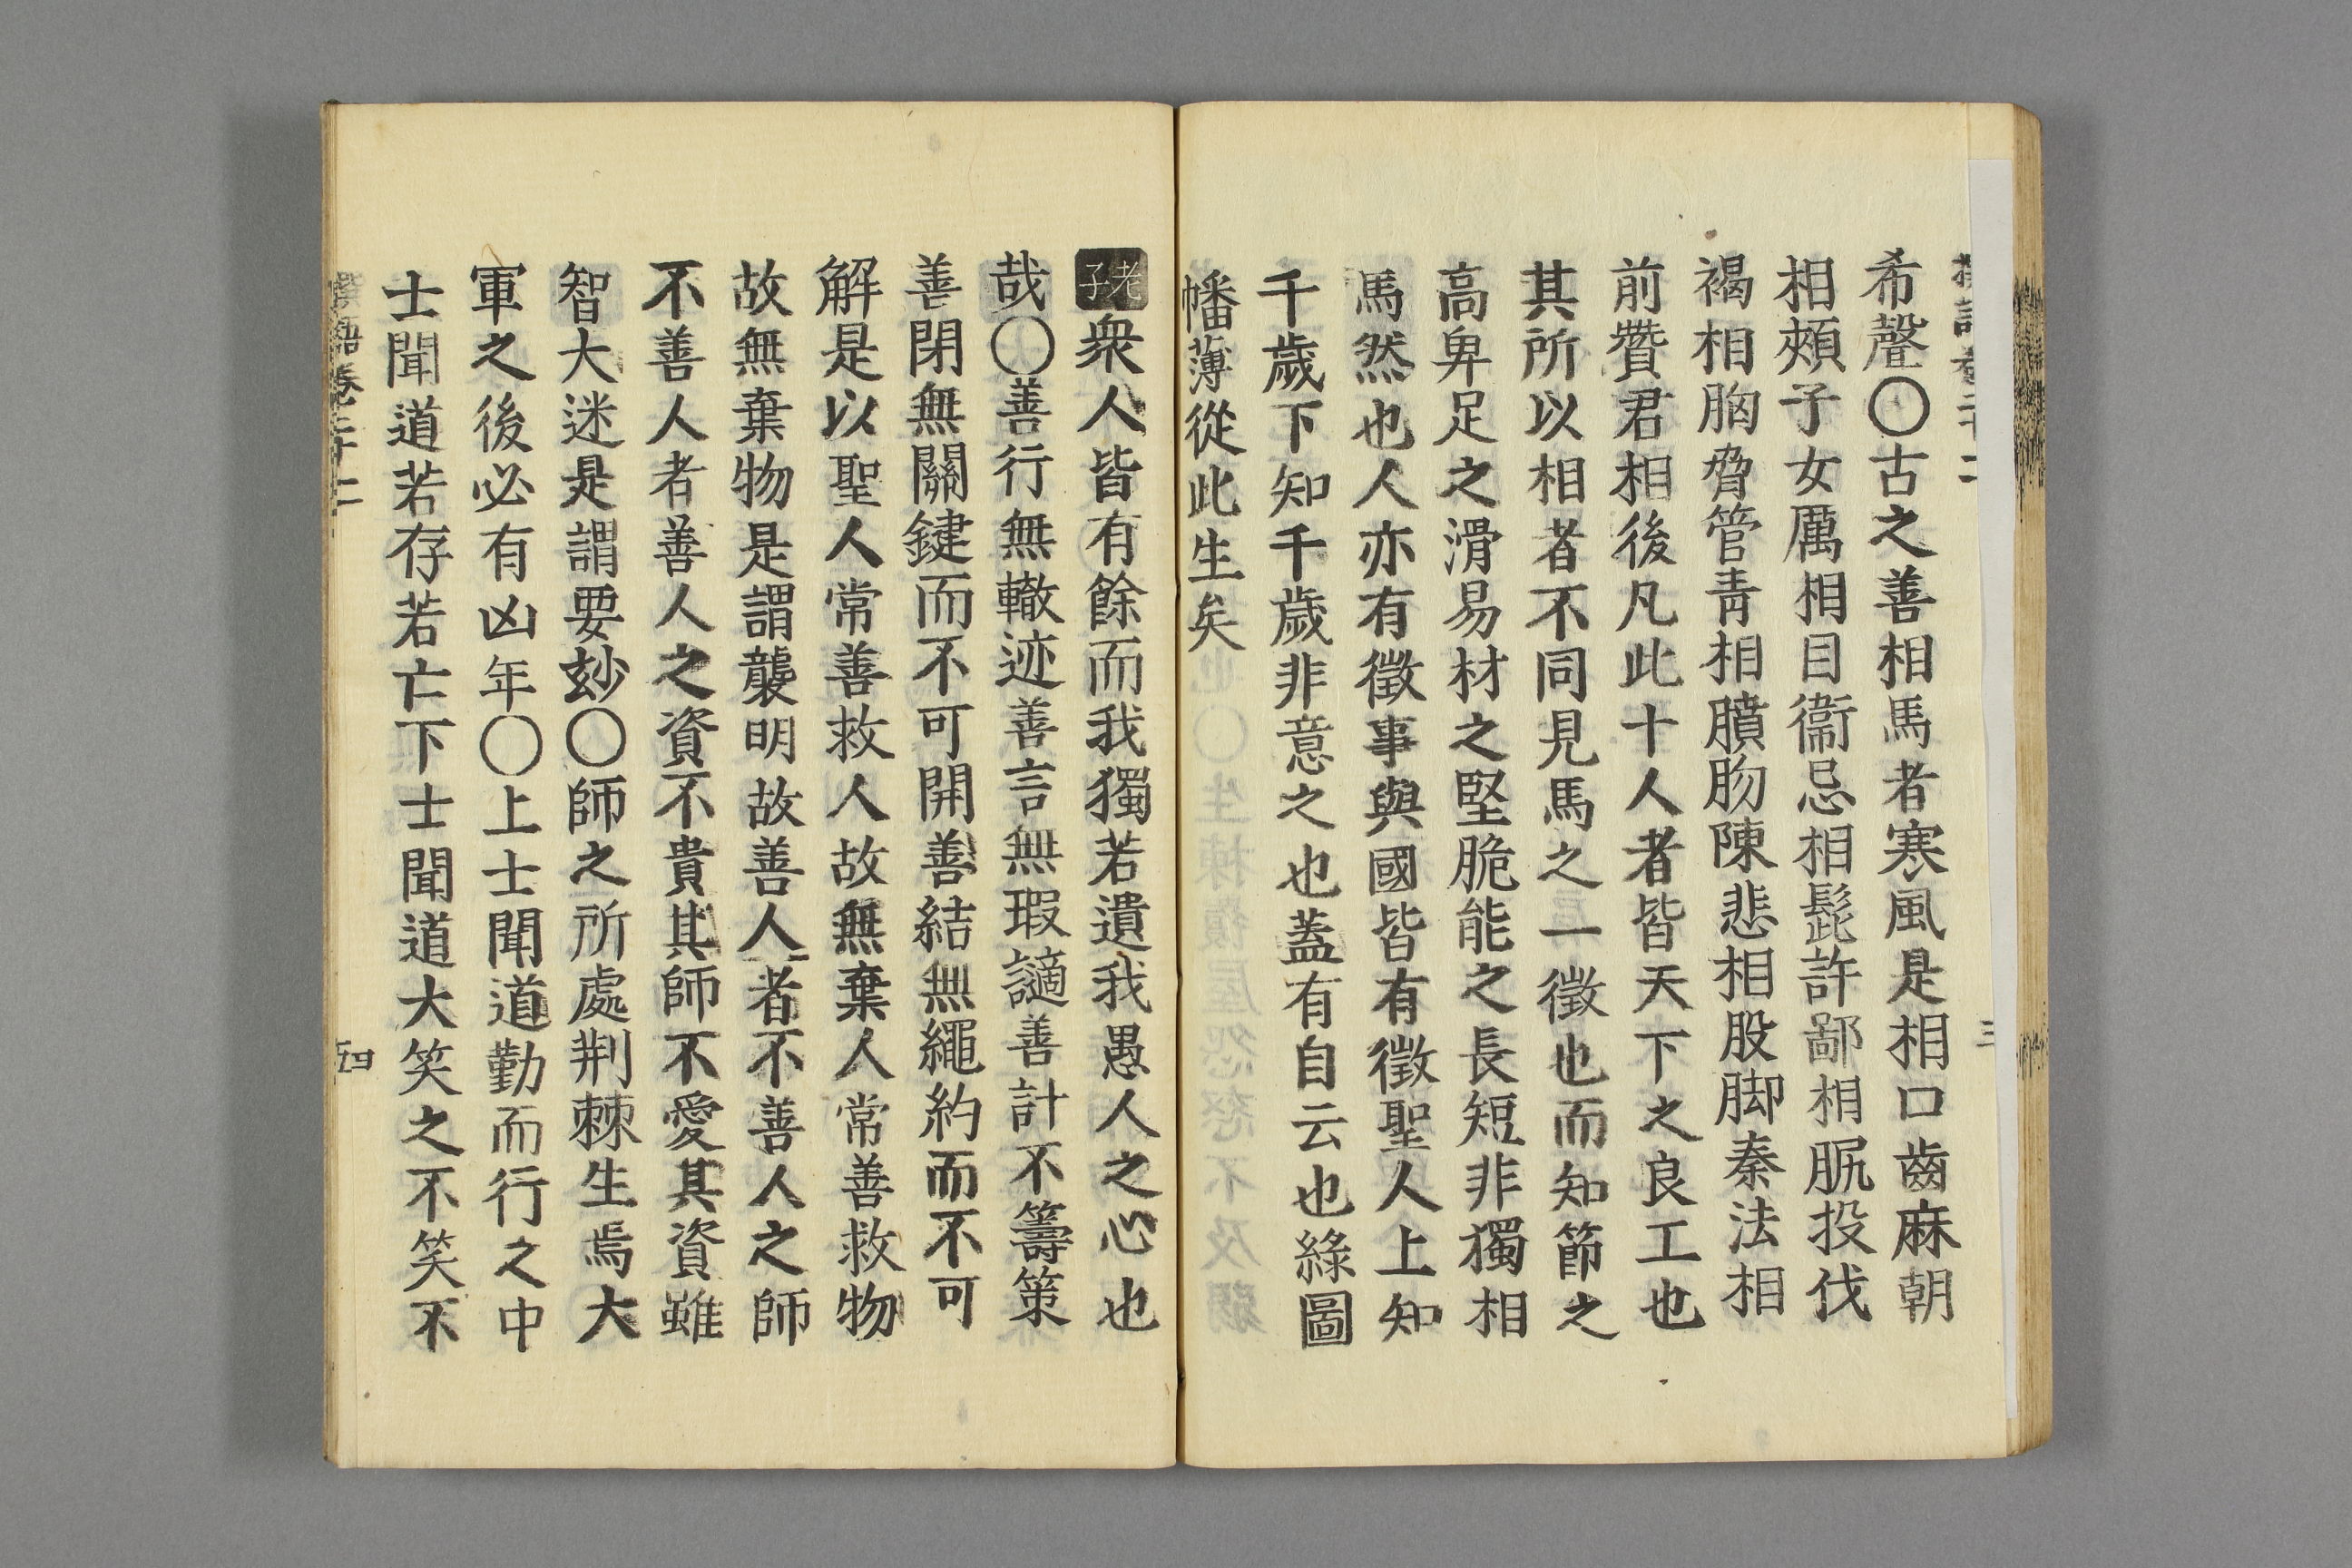 希聲〇古之善相馬者寒風是相口齒麻朝
相頰子女厲相目衞忌相髭許鄙相䐁投伐
褐相胸脅管青相䐔肕陳悲相股脚秦法相
前贊君相後凡此十人者皆天下之良工也
其所以相者不同見馬之一徵也而知節之
高卑足之滑易材之堅脆能之長短非獨相
馬然也人亦有徵事與國皆有徵聖人上知
千歲下知千歲非意之也蓋有自云也綠圖
幡薄從此生矣
老子
衆人皆有餘而我獨若遺我愚人之心也
哉〇善行無轍迹善言無瑕讁善計不籌策
善閉無關鍵而不可開善結無繩約而不可
解是以聖人常善救人故無棄人常善救物
故無棄物是謂襲明故善人者不善人之師
不善人者善人之資不貴其師不愛其資雖
智大迷是謂要玅〇師之所處荆棘生焉大
軍之後必有凶年〇上士聞道勤而行之中
士聞道若存若亡下士聞道大笑之不笑不
四